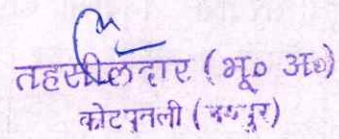 तहसीलदार (भू० अ०)
कोटपुतली (जयपुर)